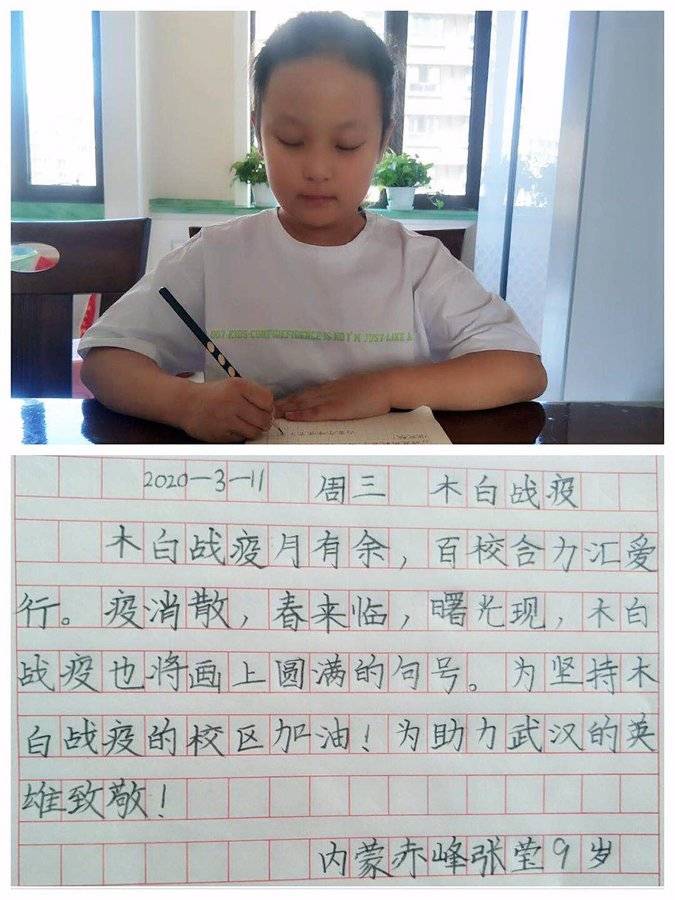 2020-3-11 周三 木白战疫
木白战疫月有余，百校合力汇爱
行。疫消散，春来临，曙光现，木白
战疫也将画上圆满的句号。为坚持木
白战疫的校区加油！为助力武汉的英
雄致敬！
内蒙赤峰张莹9岁